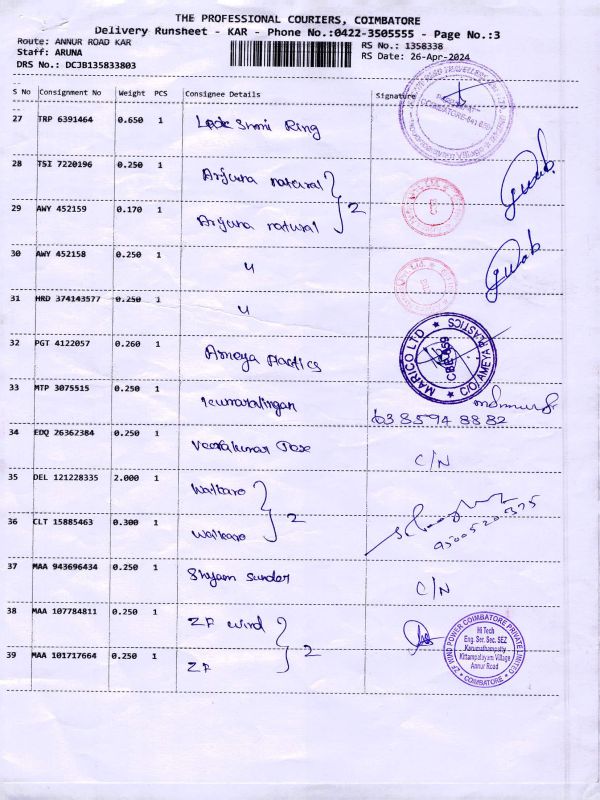 THE PROFESSIONAL COURIERS, COIMBATORE
Delivery Runsheet - KAR - Phone No.:0422-3505555 - Page No.:3
Route: ANNUR ROAD KAR
Staff: ARUNA
DRS No.: DCJB135833803
RS No.: 1358338
RS Date: 26-Apr-2024
S No Consignment No Weight PCS Consignee Details Signature
27 TRP 6391464 0.650 1 Ring
28 TSI 7220196 0.250 1 Arjuna natural
29 AWY 452159 0.170 1 Arjuna natural 2
30 AWY 452158 0.250 1 "
31 HRD 374143577 0.250 1 "
32 PGT 4122057 0.260 1 Ameya Plastics
MARICO LTD ★ C/O AMEYA PLASTICS ★
33 MTP 3075515 0.250 1
34 EDQ 26362384 0.250 1 C/N
35 DEL 121228335 2.000 1 Walkaro
36 CLT 15885463 0.300 1 Walkaro 2
37 MAA 943696434 0.250 1 Shyam Sunder C/N
38 MAA 107784811 0.250 1 ZF wind
39 MAA 101717664 0.250 1 ZF 2
ZF WIND POWER COIMBATORE PRIVATE LIMITED
Hi Tech
Eng. Ser. Sec. SEZ
Karumathampatty
Kittampalayam Village
Annur Road
COIMBATORE